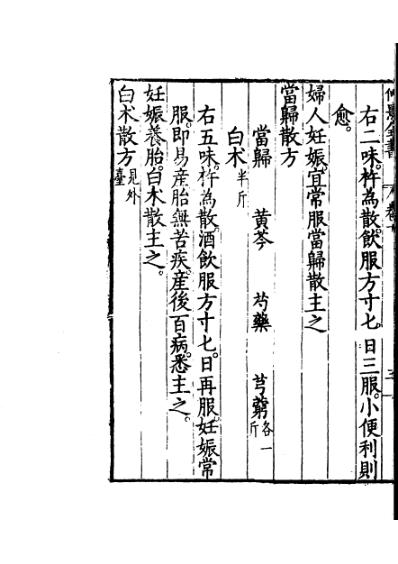 右二味。杵為散。飲服方寸七。日三服。小便利則
愈。
婦人妊娠。宜常服當歸散主之
當歸散方
當歸　黃芩　芍藥　芎藭各一斤
白术半斤
右五味杵為散。酒飲服方寸七。日再服。妊娠常
服。即易産胎無苦疾。産後百病。悉主之。
妊娠養胎。白木散主之。
白术散方見外臺